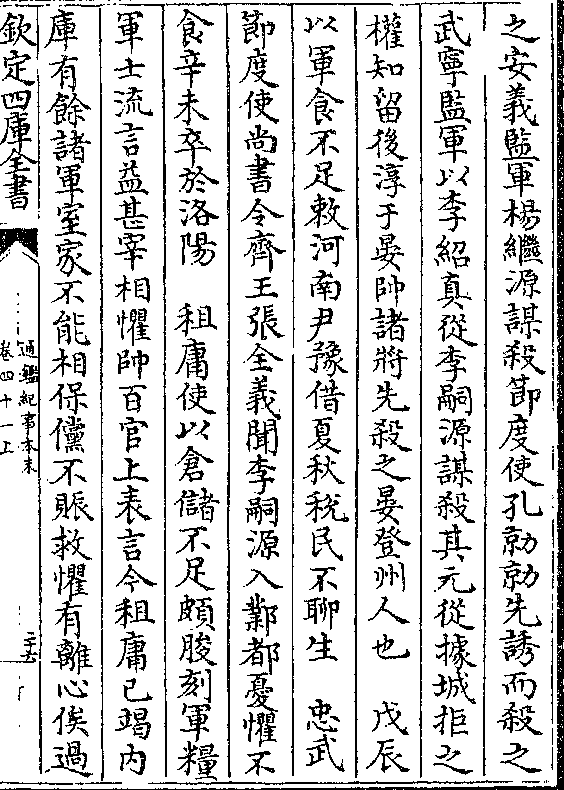 之安義監軍楊繼源謀殺節度使孔勍勍先誘而殺之
武寧監軍以李紹真從李嗣源謀殺其元從據城拒之
權知留後淳于晏帥諸將先殺之晏登州人也　戊辰
以軍食不足敕河南尹豫借夏秋稅民不聊生　忠武
節度使尚書令齊王張全義聞李嗣源入鄴都憂懼不
食辛未卒於洛陽　租庸使以倉儲不足頗朘刻軍糧
軍士流言益甚宰相懼帥百官上表言今租庸已竭內
庫有餘諸軍室家不能相保儻不賑救懼有離心俟過
欽定四庫全書
通鑑紀事本末
卷四十一上
二十六